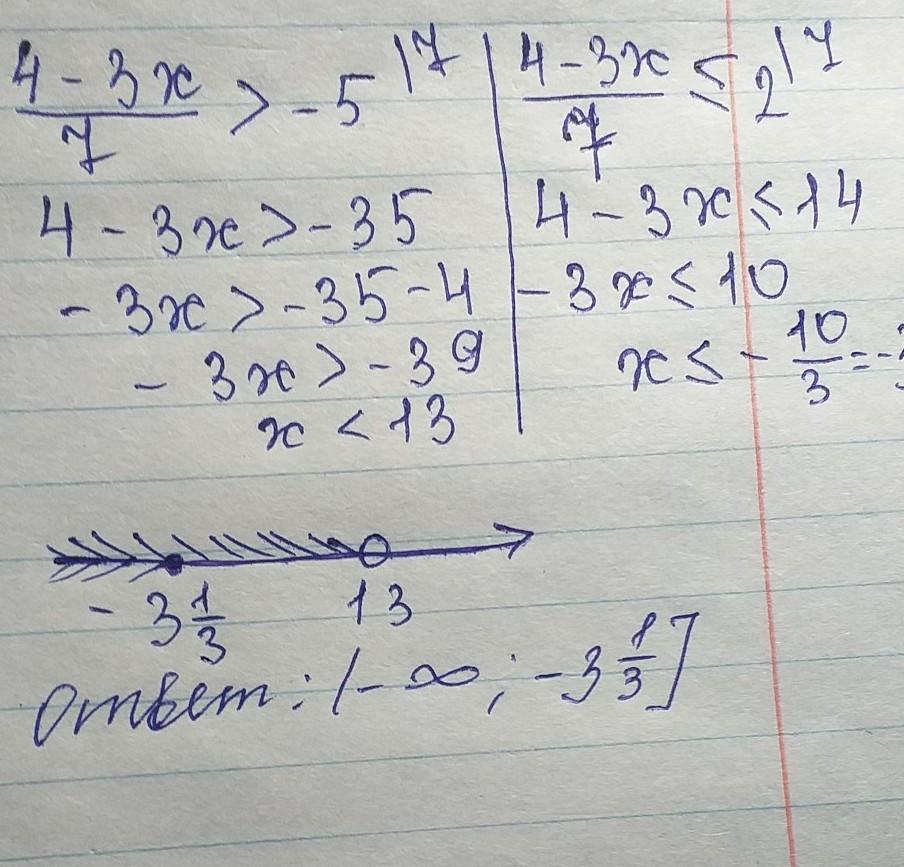 (4 - 3x)/7 > -5 |7
4 - 3x > -35
- 3x > -35 - 4
- 3x > -39
x < 13
(4 - 3x)/7 ≤ 2 |7
4 - 3x ≤ 14
- 3x ≤ 10
x ≤ - 10/3 = -
- 3 1/3 13
Ответ: (-∞; -3 1/3]